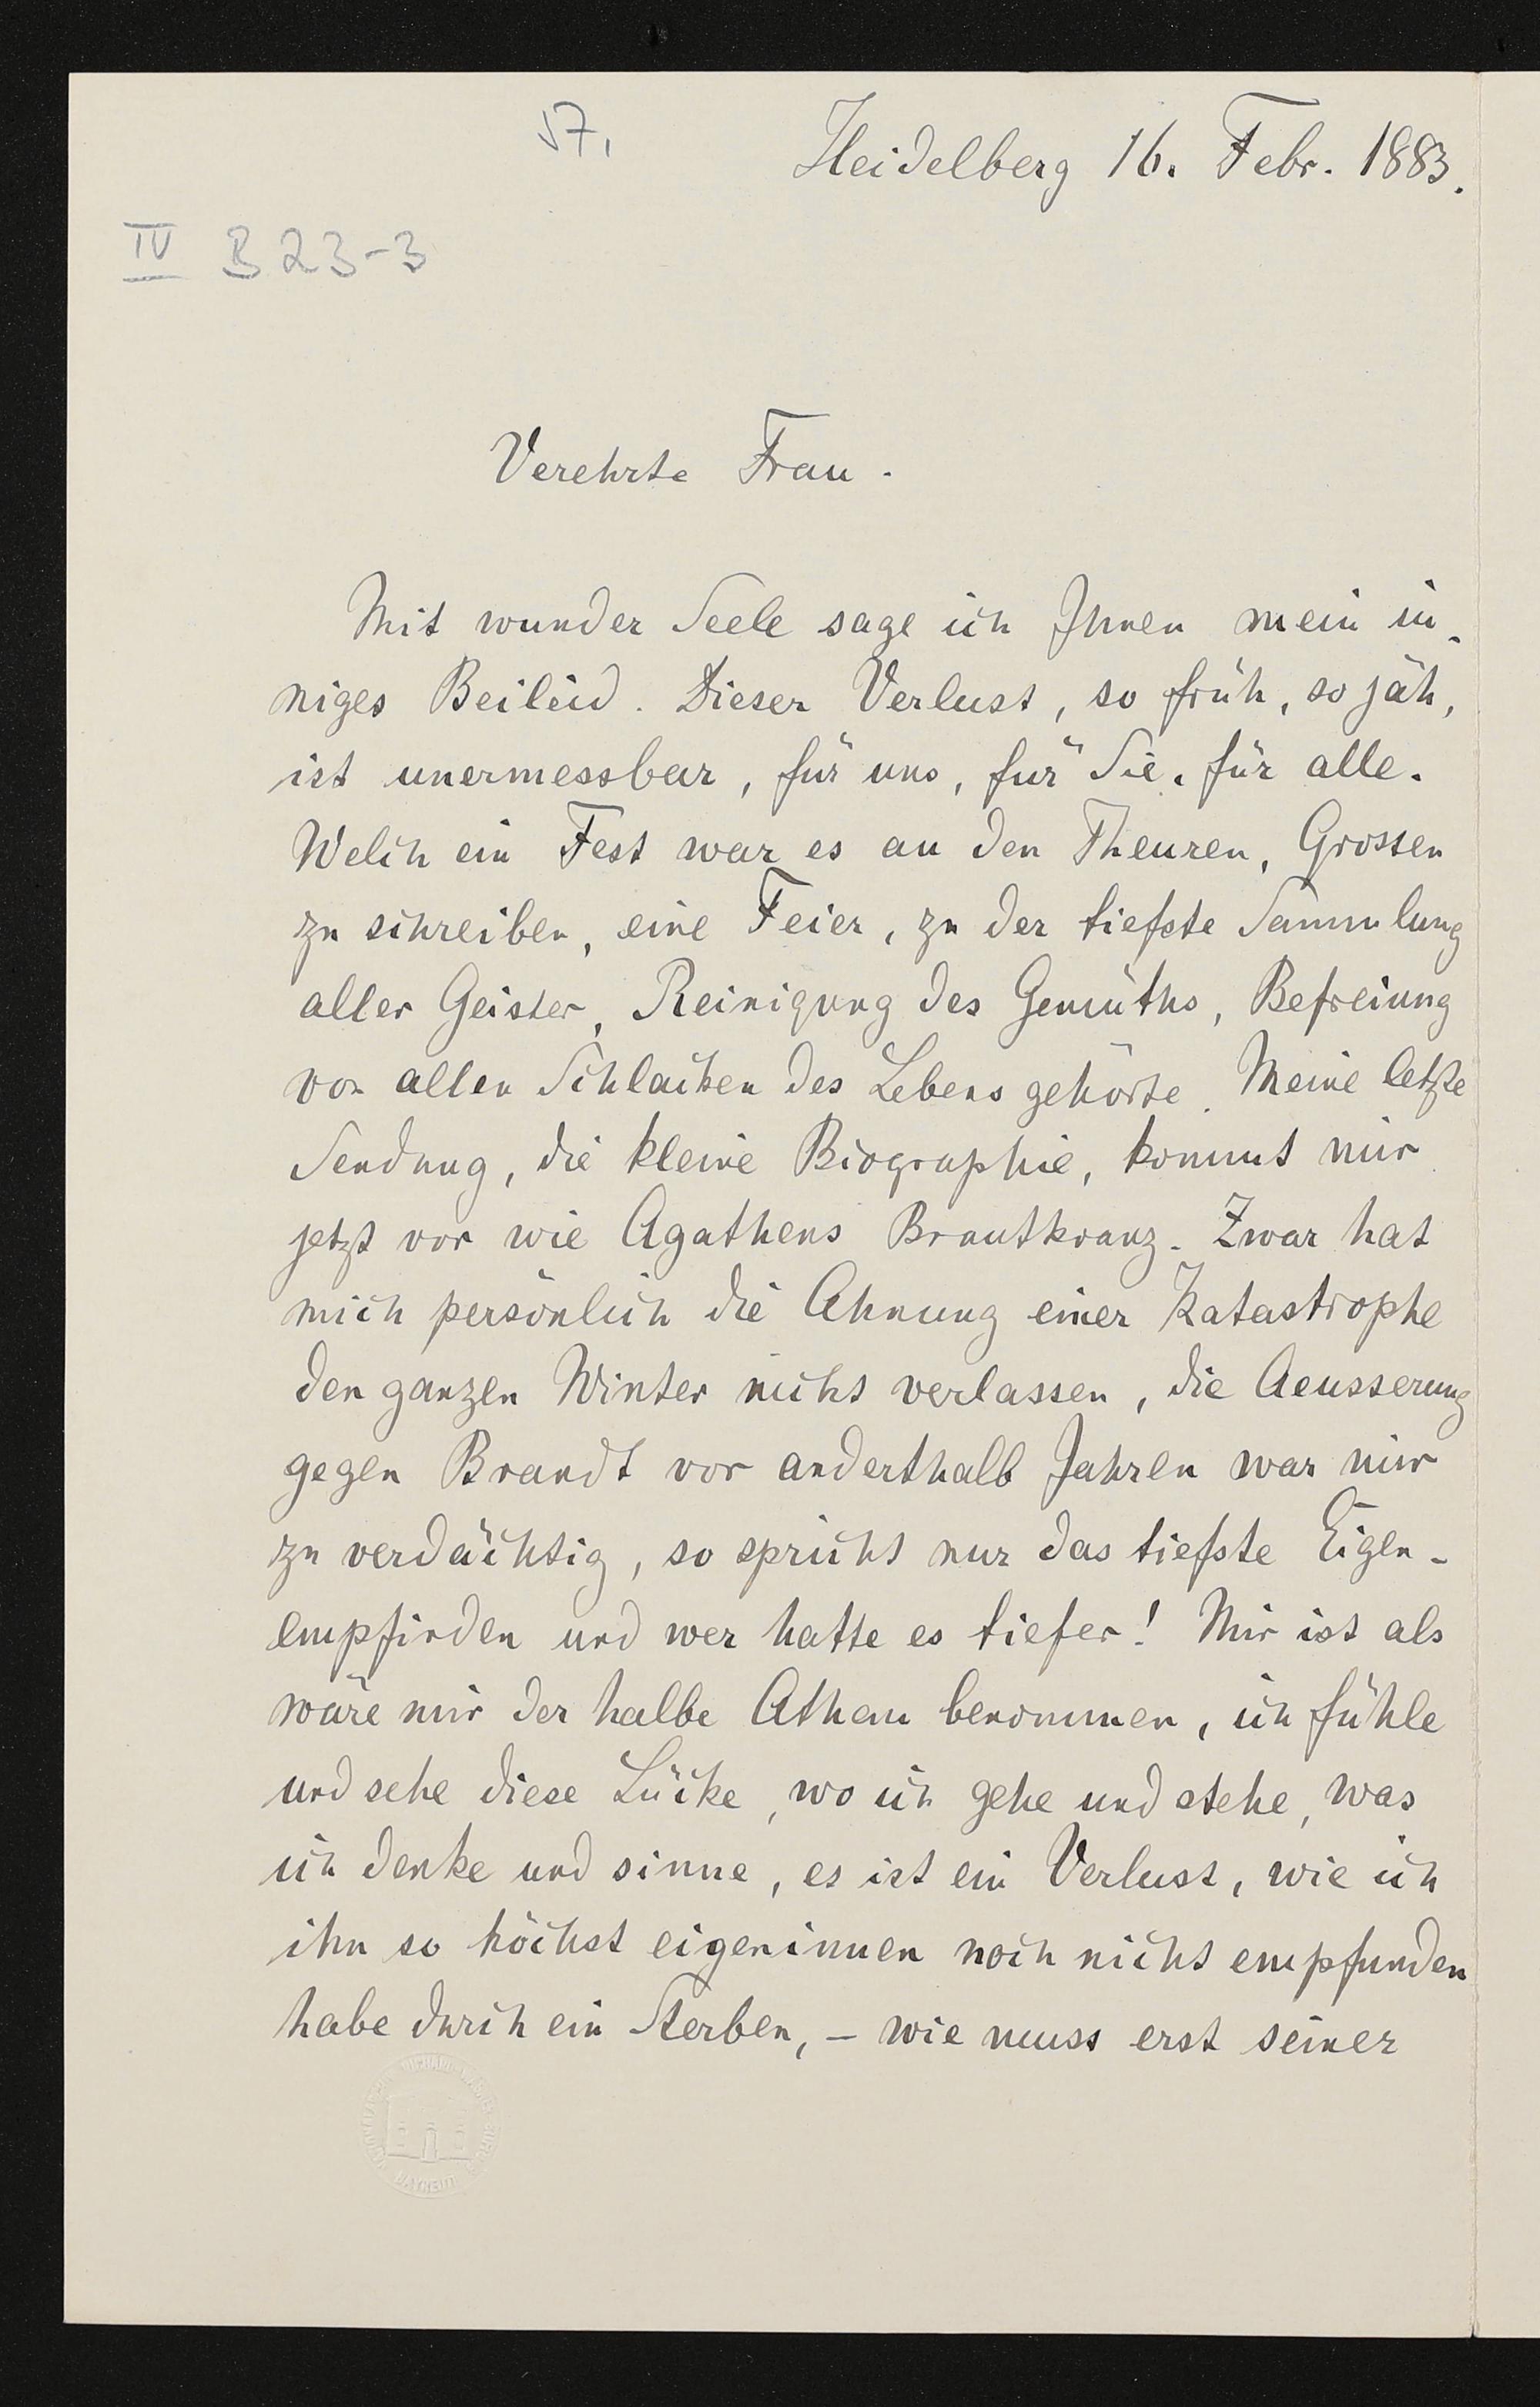 57.
Heidelberg 16. Febr. 1883.
IV B 23-3
Verehrte Frau.
Mit wunder Seele sage ich Ihnen mein in-
niges Beileid. Dieser Verlust, so früh, so jäh,
ist unermessbar, für uns, für Sie, für alle.
Welch ein Fest war es an den Theuren, Grossen
zu schreiben, eine Feier, zu der tiefste Sammlung
aller Geister, Reinigung des Gemüths, Befreiung
von allen Schlacken des Lebens gehörte. Meine letzte
Sendung, die kleine Biographie, kommt mir
jetzt vor wie Agathens Brautkranz. Zwar hat
mich persönlich die Ahnung einer Katastrophe
den ganzen Winter nicht verlassen, die Aeusserung
gegen Brandt vor anderthalb Jahren war mir
zu verdächtig, so spricht nur das tiefste Eigen-
empfinden und wer hatte es tiefer! Mir ist als
wäre mir der halbe Athem benommen, ich fühle
und sehe diese Lücke, wo ich gehe und stehe, was
ich denke und sinne, es ist ein Verlust, wie ich
ihn so höchst eigeninnen noch nicht empfunden
habe durch ein Sterben, – wie muss erst seiner
BAYREUTH